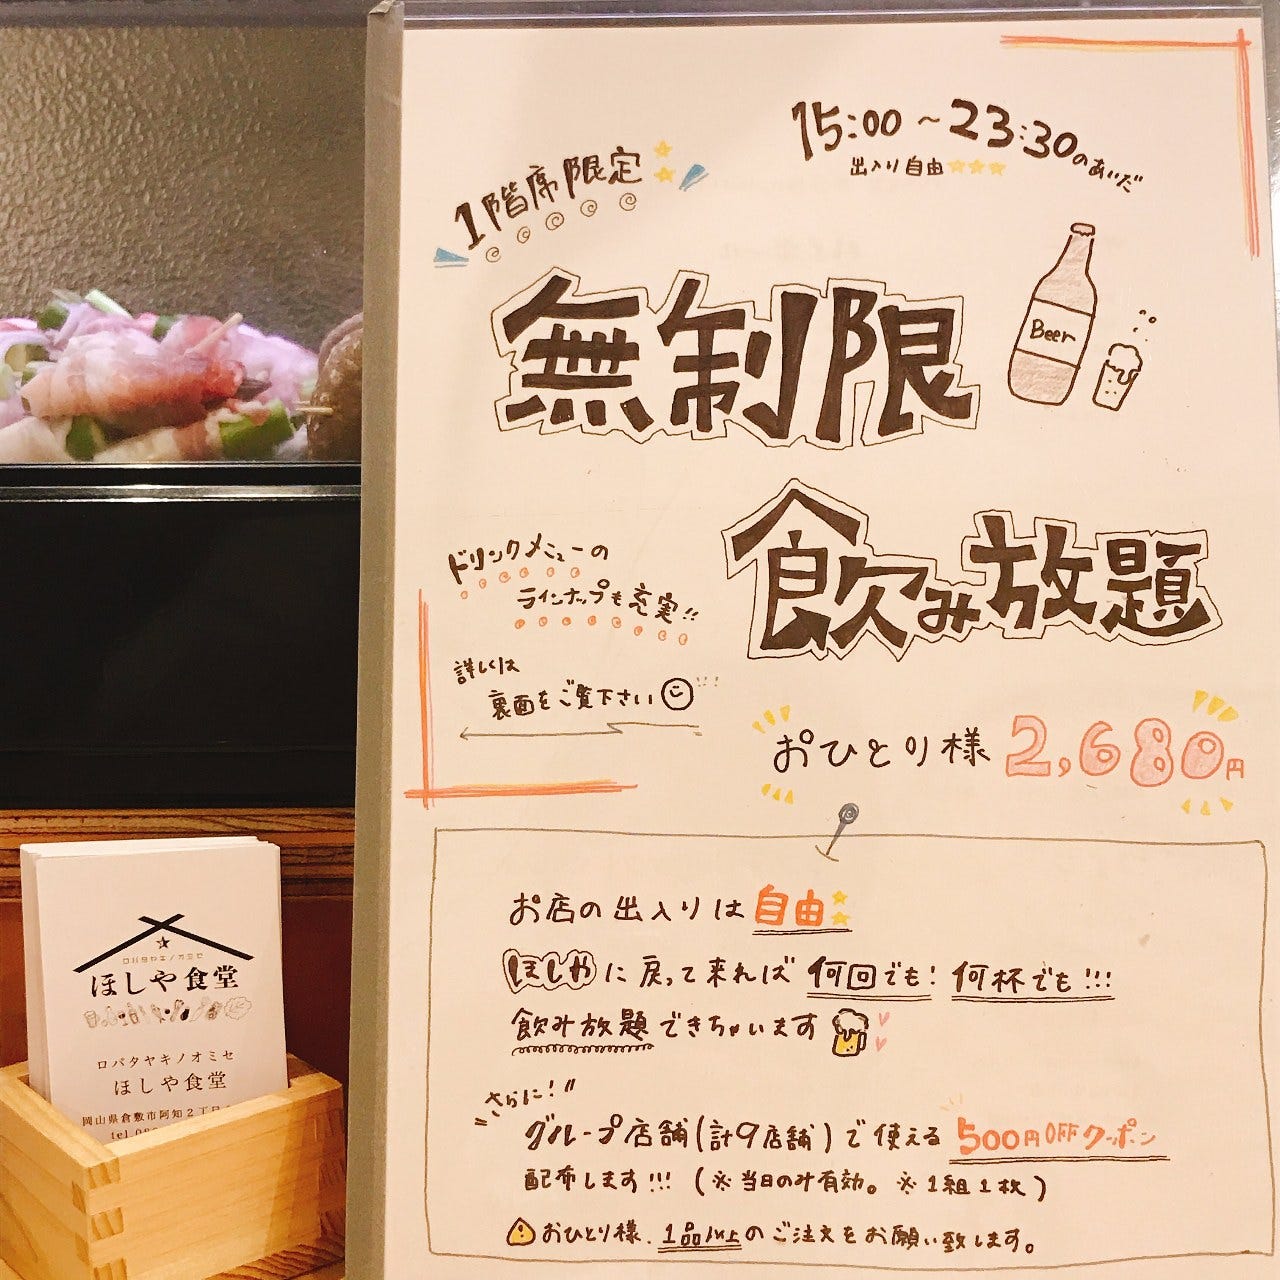 15:00～23:30のあいだ
出入り自由
1階席限定
無制限
Beer
飲み放題
ドリンクメニューの
ラインナップも充実!!
詳しくは
裏面をご覧下さい
おひとり様 2,680円
お店の出入りは自由
ほしやに戻って来れば 何回でも! 何杯でも!!!
飲み放題できちゃいます
さらに!
グループ店舗(計9店舗)で使える 500円OFFクーポン
配布します!!! (※当日のみ有効。※1組1枚)
おひとり様、1品以上のご注文をお願い致します。
ロバタヤキノオミセ
ほしや食堂
ロバタヤキノオミセ
ほしや食堂
岡山県倉敷市阿知2丁目
tel.08